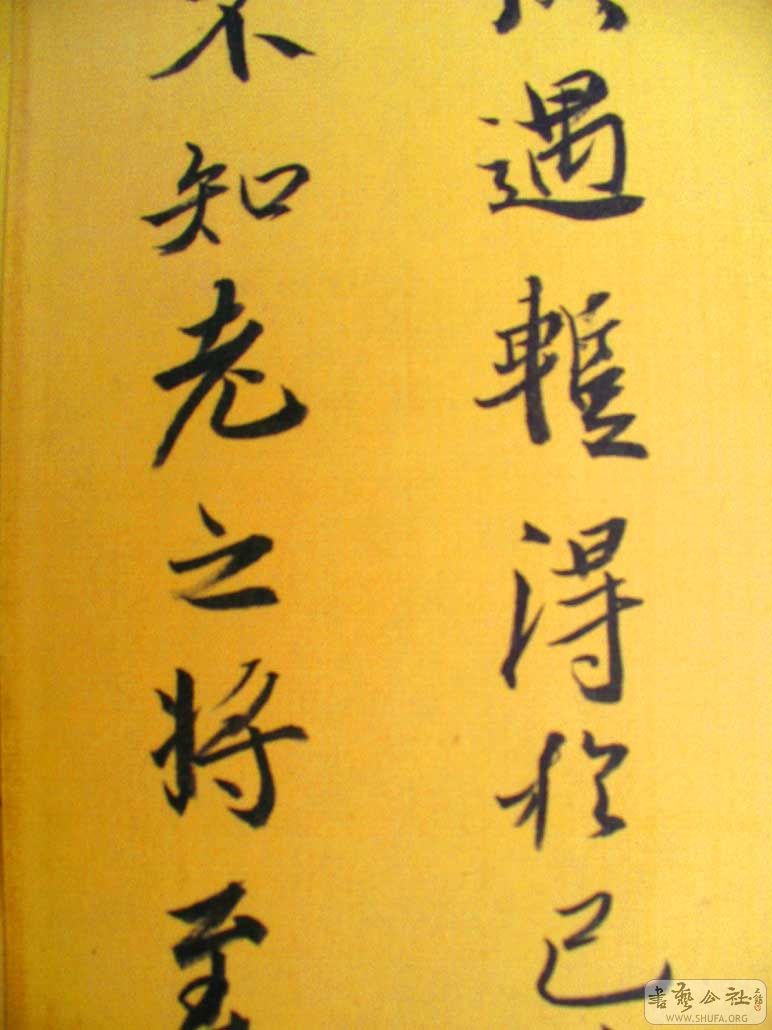 遇暫得於己
不知老之將至
書藝公社
WWW.SHUFA.ORG